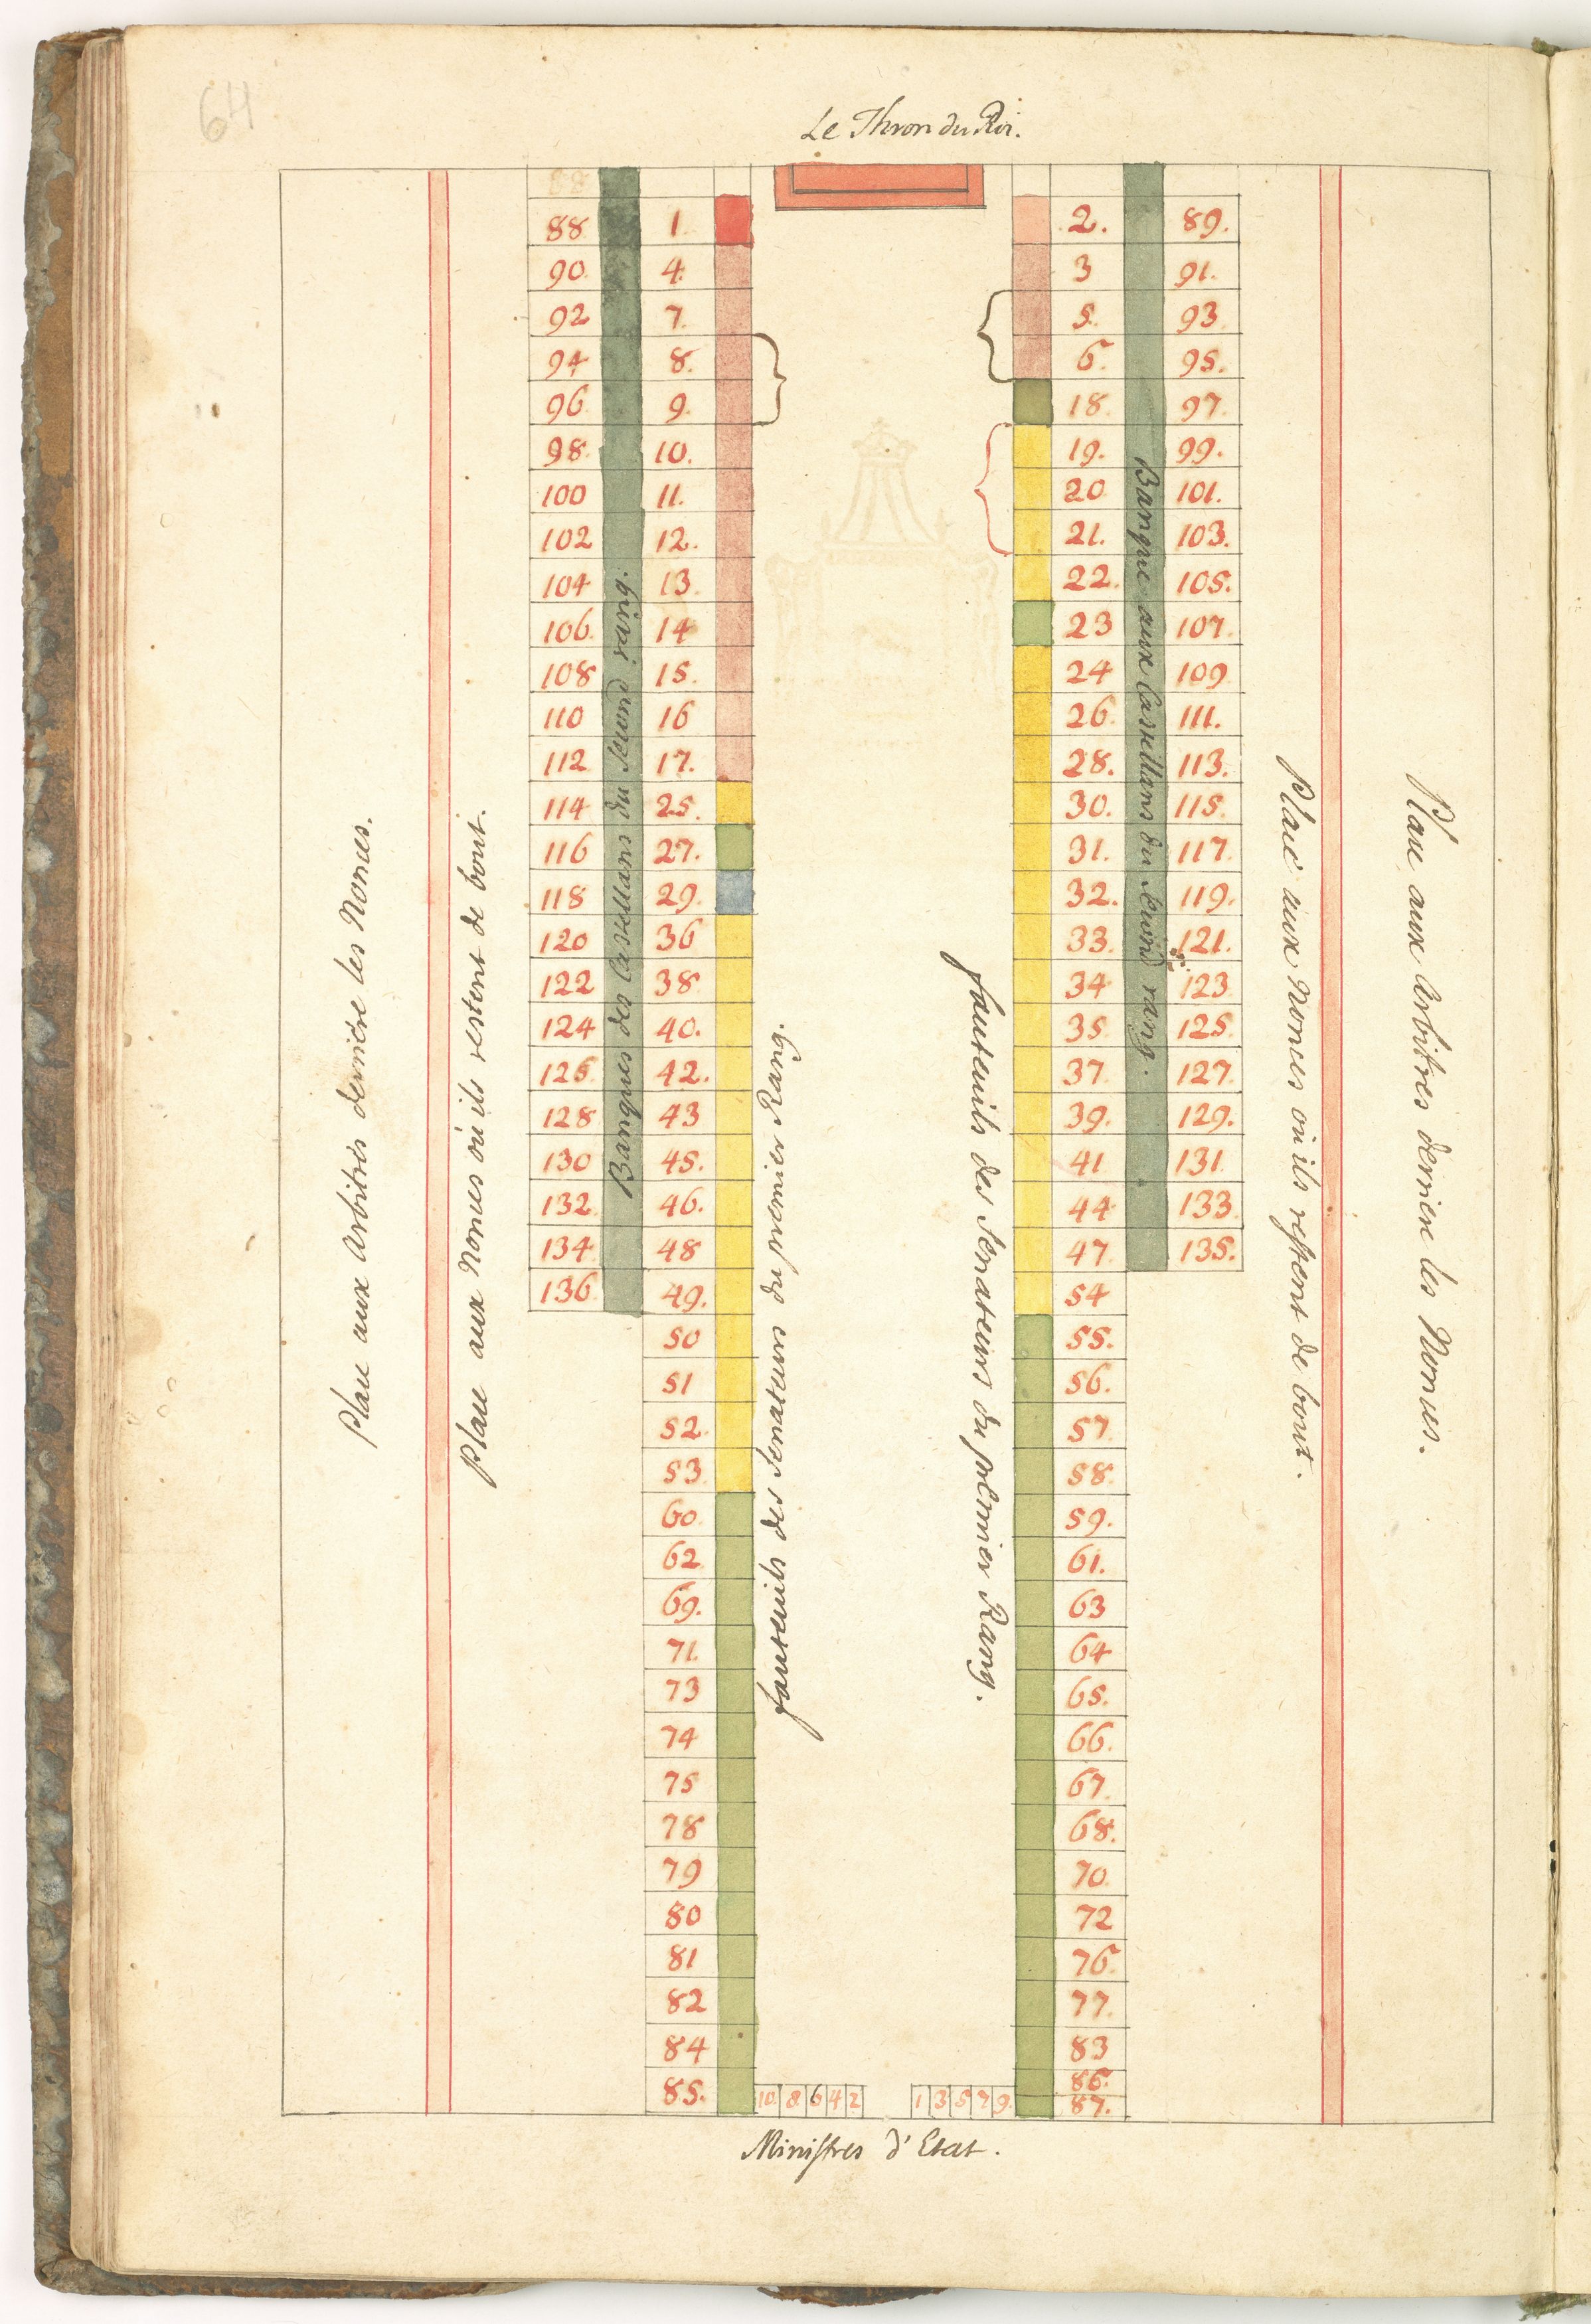 64
Le Thron du Roi.
88 1. 2. 89.
90 4. 3 91.
92 7. 5. 93
94 8. 6. 95.
96 9. 18. 97
98 10. 19. 99.
100 11. 20 101.
102 12. 21. 103.
104 13 22. 105.
106. 14 23 107.
108 15. 24 109
110 16 26. 111.
112 17. 28. 113.
114 25. 30. 115.
116 27. 31. 117
118 29. 32. 119.
120 36 33. 121.
122 38 34 123
124 40. 35 125.
126 42. 37 127.
128 43 39. 129.
130 45. 41 131
132 46. 44 133
134 48 47. 135.
136 49. 54
50 55.
51 56.
52 57
53 58.
60 59.
62 61.
69. 63
71. 64
73 65.
74 66.
75 67.
78 68.
79 70.
80 72
81 76
82 77.
84 83
85. 86.
87.
10. 8. 6 4 2 1 3 5 7 9.
Place aux Arbitres derriere les Nonces.
Place aux Nonces où ils restent de bout.
Banques des Castellans du Second rang.
fauteuils des Senateurs du premier Rang.
fauteuils des Senateurs du premier Rang.
Banque aux Castellans du Second rang.
Place aux Nonces où ils restent de bout.
Place aux Arbitres derriere les Nonces.
Ministres d'Etat.